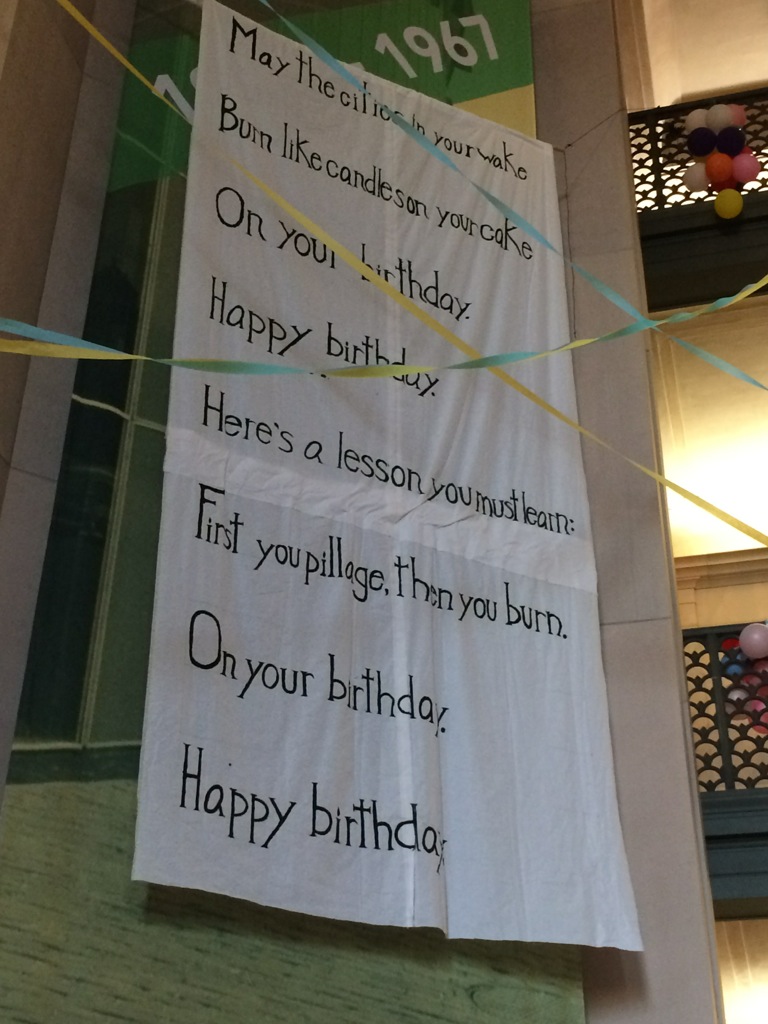 1967
May the cities in your wake
Burn like candles on your cake
On your birthday.
Happy birthday.
Here's a lesson you must learn:
First you pillage, then you burn.
On your birthday.
Happy birthday.